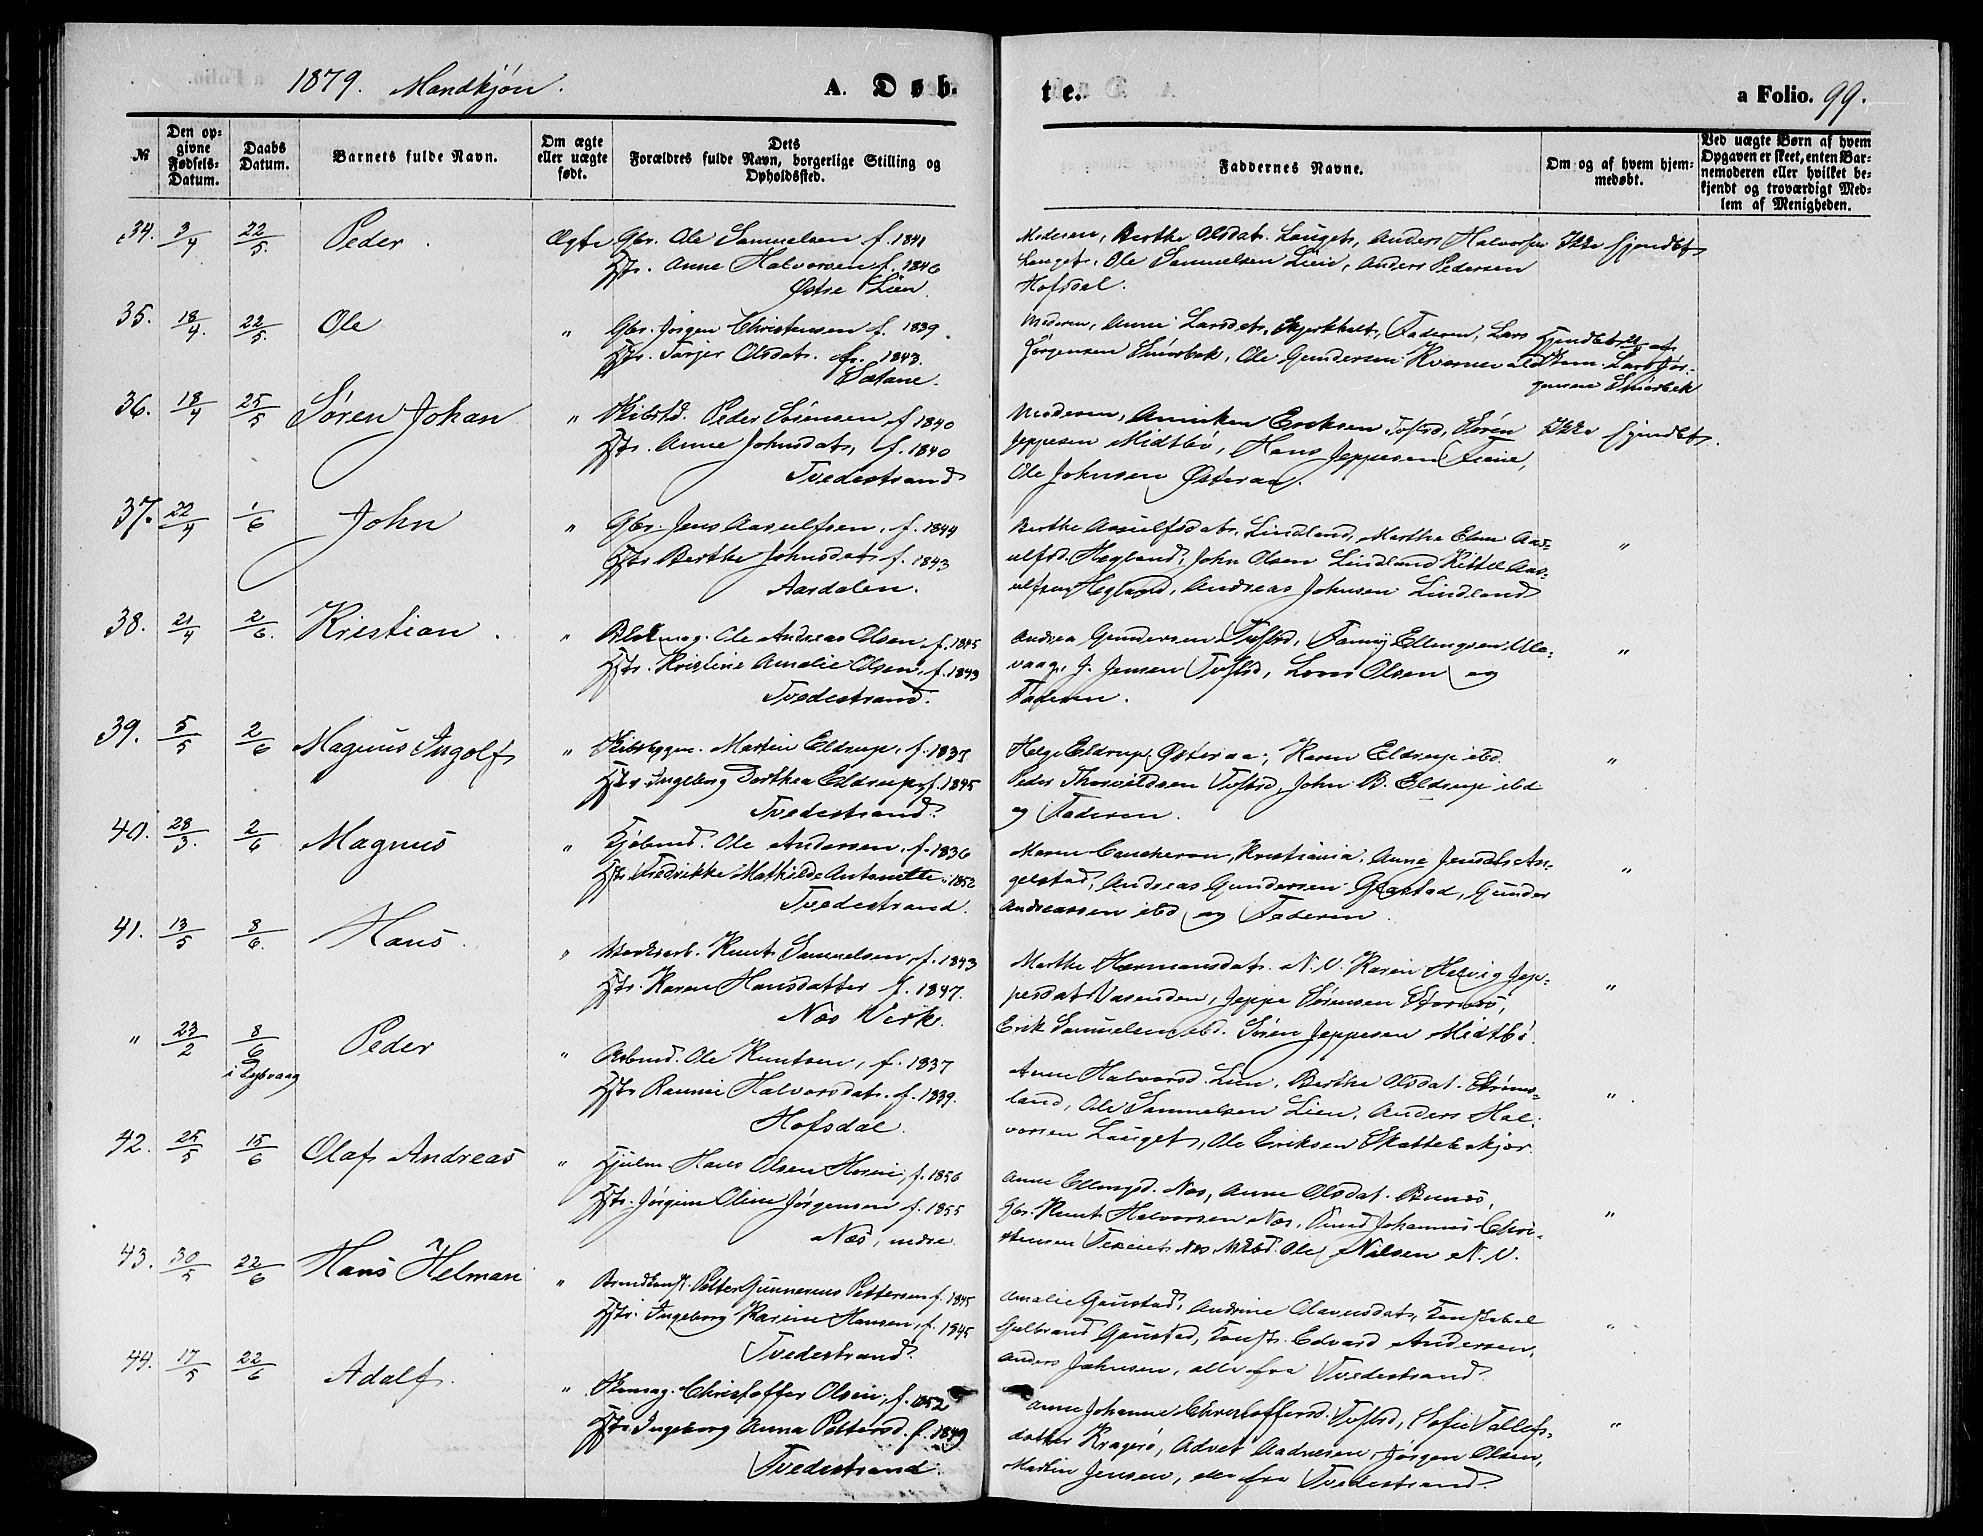 1879. Mandkjøn.
A. Døb-
te.
a Folio. 99.
№
Den opgivne Fødsels-Datum.
Daabs Datum.
Barnets fulde Navn.
Om ægte eller uægte født.
Dets Forældres fulde Navn, borgerlige Stilling og Opholdssted.
Faddernes Navne.
Om og af hvem hjemmedøbt.
Ved uægte Børn af hvem Opgaven er skeet, enten Barnemoderen eller hvilket bekjendt og troværdigt Medlem af Menigheden.
34. 3/4 22/5 Peder. Ægte Gbr. Ole Samuelsen f. 1841
Hstr. Anne Halvorsen f. 1846
Østre Lien.
Moderen, Berthe Olsdat. Lauget, Anders Halvorsen
Lauget, Ole Samuelsen Lien, Anders Pedersen
Hofsdal.
Ikke hjmdbt.
35. 18/4 22/5 Ole " Gbr. Jørgen Christensen f. 1839.
Hstr. Tarjer Olsdat. f. 1843.
Sætane.
Moderen, Anne Larsdat, Faderen, Lars
Jørgensen Smørbek, Ole Gundersen
Hjemdøbt af
Lars Jør-
gensen Smørbek
36. 18/4 25/5 Søren Johan " Peder Sørensen f. 1840
Hstr. Anne Johnsdat, f. 1840
Tvedestrand
Moderen, Anniken Eriksen Tvstrd, Søren
Jeppesen Midtbø, Hans Jeppesen
Ole Johnsen Østeraa.
Ikke hjmdbt.
37. 22/4 1/6 John " Gbr. Jens Aasulfsen, f. 1844
Hstr Berthe Johnsdat f. 1843
Aasdalen.
Berthe Aasulfsdat. Lindland, Marthe Elen Aas-
ulfsd. Hegland, John Olsen Lindland Kittel Aas-
ulfsen Hegland, Andreas Johnsen Lindland
"
38. 21/4 2/6 Kristian. " Blokmag. Ole Andreas Olsen, f. 1845
Hstr. Kristine Amalie Olsen, f. 1843
Tvedestrand.
Andrea Gundersen Tvstrd, Fanny Ellingsen Ulle-
vaag, J. Jensen Tvstrd, Lovis Olsen og
Faderen.
"
39. 5/5 2/6 Magnus Ingolf " Skibsbygm. Martin Eldrup, f. 1835
Hstr Ingeborg Dorthea Eldrup, f. 1845
Tvedestrand.
Helge Eldrup Østeraa, Karen Eldrup ibd
Peder Thorvaldsen Tvstrd, John B. Eldrup ibd
og Faderen.
"
40. 28/3. 2/6 Magnus " Kjøbmd. Ole Andersen, f. 1836
Hstr Fredrikke Mathilde Antonette f. 1852
Tvedestrand.
Maren Kristiania, Anne Jensdat An-
gelstad, Andreas Gundersen Gjæstad, Gunder
Andreassen ibd og Faderen.
"
41. 13/5 8/6. Hans. " Værksarb. Knut Samuelsen, f. 1843
Hstr. Karen Hansdatter f. 1847.
Næs Verk.
Marthe Hermansdat. N.V. Karen Helvig Jep-
pesdat Vasenden, Jeppe Sørensen
Erik Samuelsen ibd. Søren Jeppesen Midtbø.
"
" 23/2 8/6 i Dybvaag Peder " Arbmd. Ole Knutsen, f. 1837
Hstr Rannei Halvorsdat. f. 1839.
Hofsdal.
Anne Halvorsd. Lien, Berthe Olsdat. Strøms-
land, Ole Samuelsen Lien, Anders Hal-
vorsen Lauget, Ole Eriksen Skatteboskjær.
"
42. 25/5 15/6 Olaf Andreas " Hjulm. Hans Olsen f. 1856
Hstr. Jørgine Oline Jørgensen f. 1855
Næs, nedre
Anne Ellingsd. Næs, Anne Olsdat. Bunæs,
Gbr. Knut Halvorsen Næs, Johannes Chri-
stensen Ole Nilsen N.V.
"
43. 30/5 22/6 Hans Helman " Petter Gunnerius Pettersen f. 1845
Hstr. Ingeborg Karine Hansen, f. 1845
Tvedestrand.
Amalie Gaustad, Andrine Olavesdat, Konstabel
Gulbrand Gaustad, Konst. Edvard Andersen,
Anders Johnsen, alle fra Tvedestrand.
"
44. 17/5 22/6 Adolf. " Skomag. Christoffer Olsen, f. 1852
Hstr Ingeborg Anna Pettersd. f. 1849
Tvedestrand.
Anne Johanne Christoffersd. Tvstrd, Sofie Tallefs-
datter Kragerø, Advet Aadnesen, Jørgen Olsen,
Martin Jensen, alle fra Tvedestrand.
"